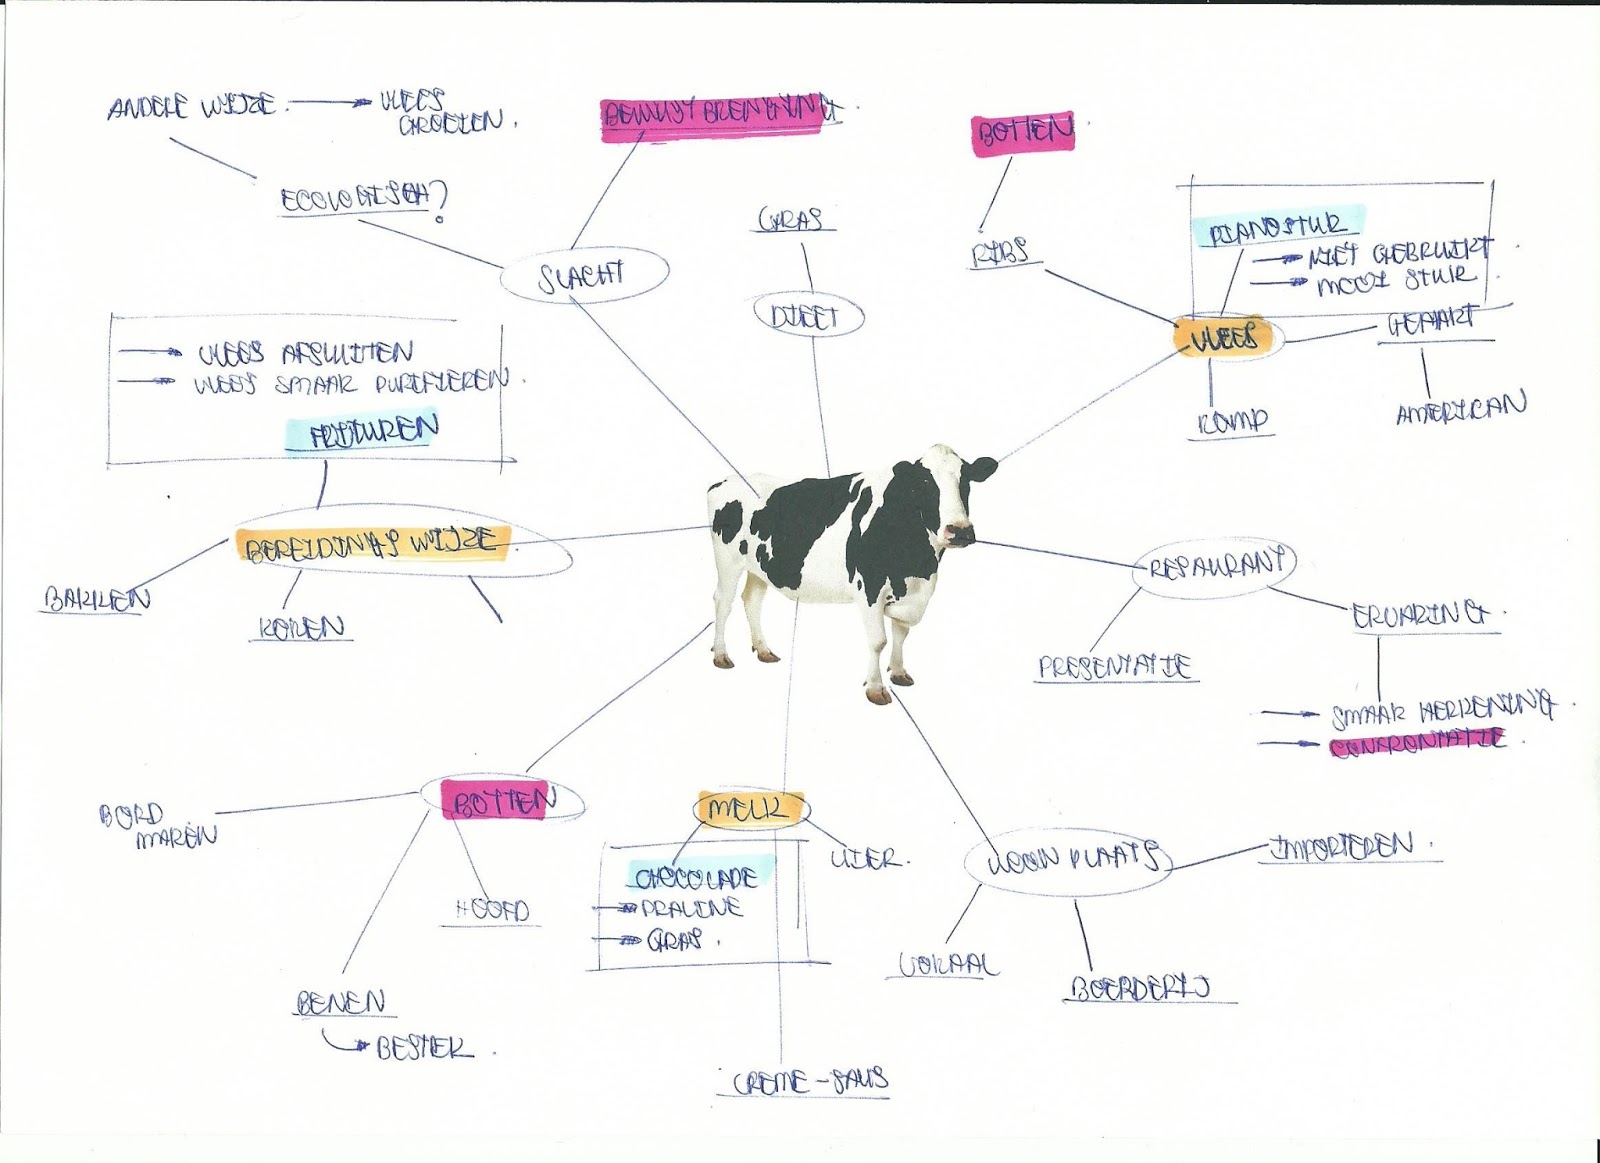 ANDERE WIJZE.
VLEES
GROEIEN.
BEWUST BRENGING.
BOTTEN
ECOLOGISCH?
GRAS
PIANOSTUK
NIET GEBRUIKT
MOOI STUK
RIBS
SLACHT
DIEET
VLEES
GEHAKT
VLEES AFSLUITEN
VLEES SMAAK PURIFIEREN.
FRITUREN
KOMP
AMERICAN
BEREIDINGS WIJZE
BAKKEN
KOKEN
RESTAURANT
ERVARING.
PRESENTATIE
SMAAK HERKENING.
CONFRONTATIE.
BOTTEN
MELK
BORD
MAKEN
UIER.
WOON PLAATS
IMPORTEREN.
CHOCOLADE
PRALINE
GRAS.
HOOFD
LOKAAL
BOERDERIJ
BENEN
BESTEK.
CREME-SAUS